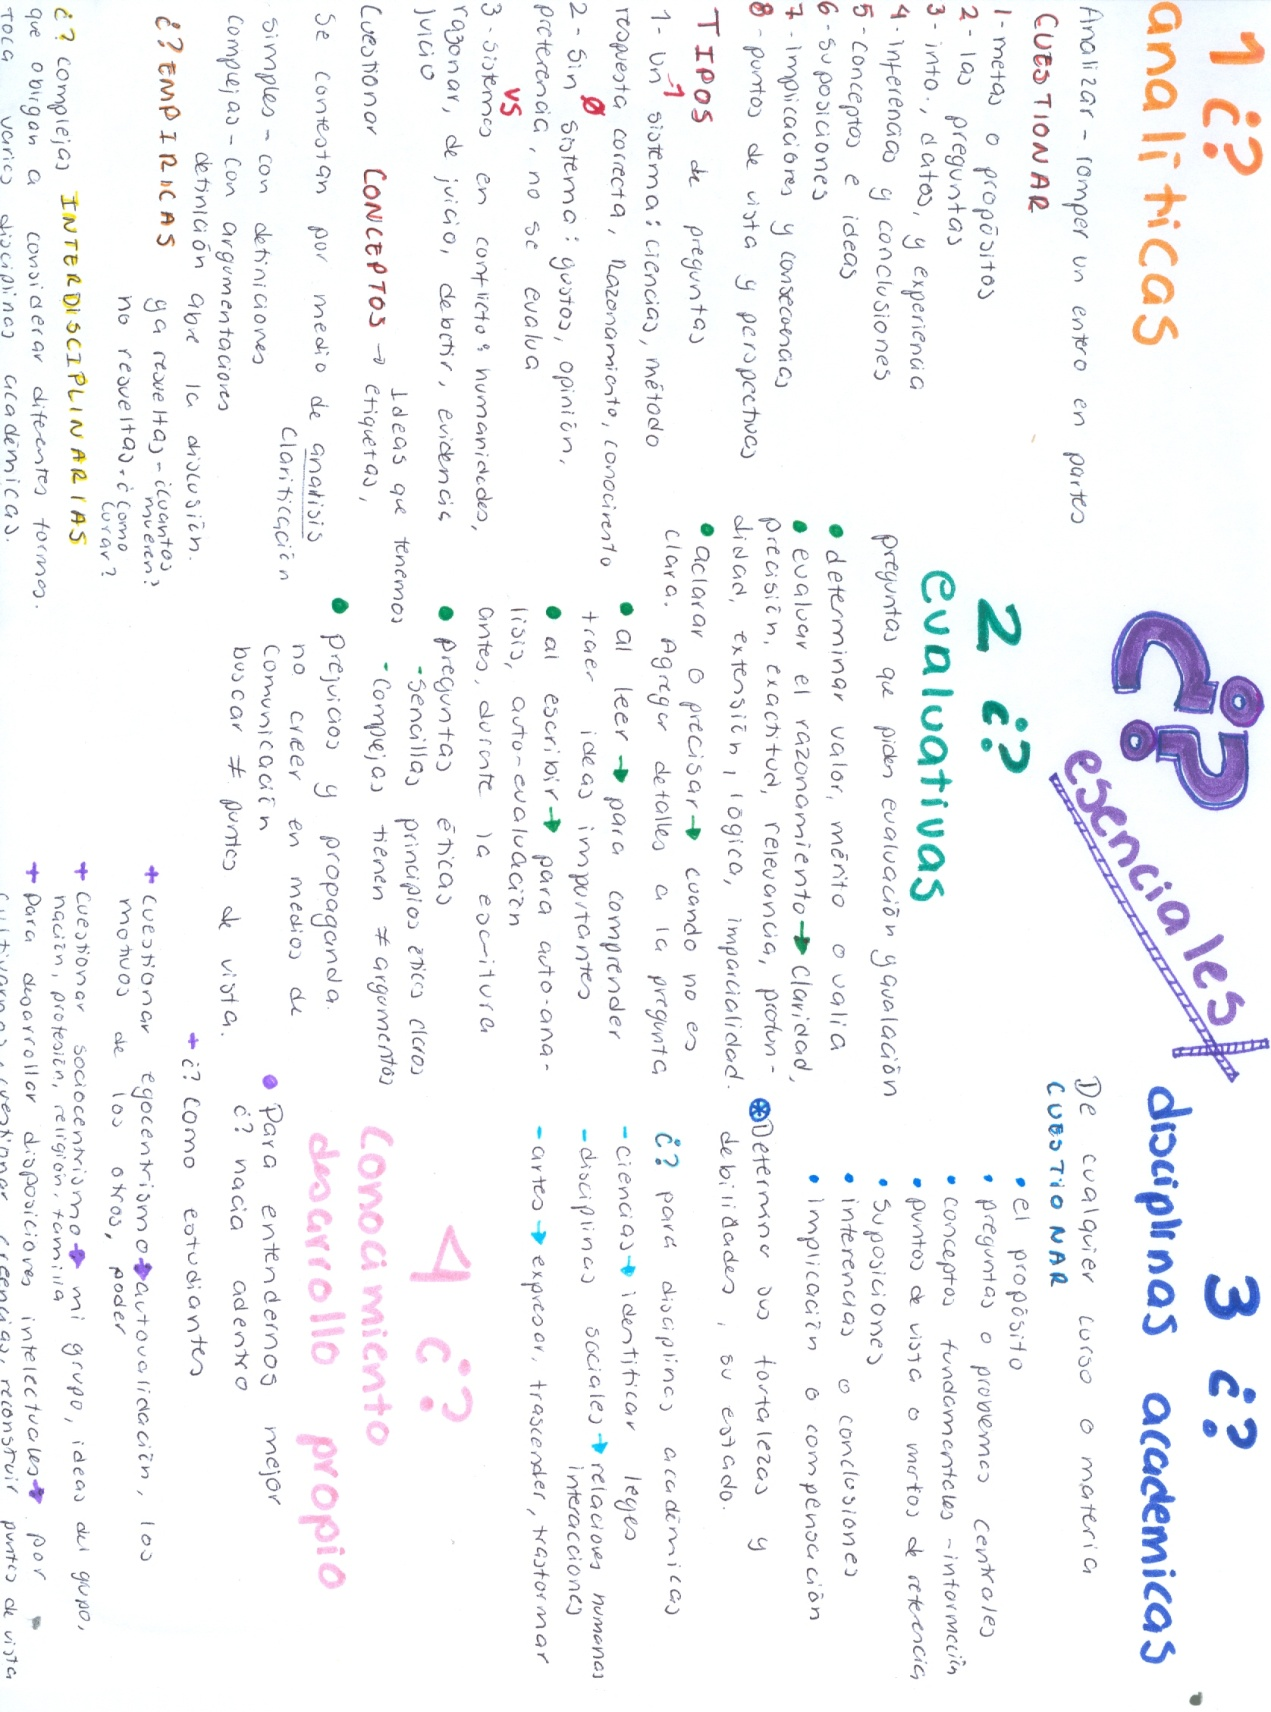 ¿? esenciales
1 ¿?
analíticas
Analizar - romper un entero en partes
CUESTIONAR
1- metas o propósitos
2 - las preguntas
3 - info., datos, y experiencia
4 - inferencias y conclusiones
5 - conceptos e ideas
6 - suposiciones
7 - implicaciones y consecuencias
8 - puntos de vista y perspectivas
TIPOS de preguntas
1- Un sistema: ciencias, método
1
respuesta correcta, Razonamiento, conocimiento
2 - Sin sistema: gustos, opinión,
Ø
preferencia, no se evalua
3 - sistemas en conflicto: humanidades,
vs
razonar, de juicio, debatir, evidencia
juicio
Cuestionar CONCEPTOS → etiquetas,
Ideas que tenemos
Se contestan por medio de analisis
Clarificación
simples - con definiciones
complejas - con argumentaciones
definición abre la discusión.
¿? EMPIRICAS
ya resueltas - ¿cuantos mueren?
no resueltas - ¿Como curar?
¿? complejas INTERDISCIPLINARIAS
que obligan a considerar diferentes formas.
Toca varias disciplinas académicas.
2 ¿?
evaluativas
preguntas que piden evaluación y avalación
• determinar valor, mérito o valía
• evaluar el razonamiento → Claridad,
precisión, exactitud, relevancia, profun-
didad, extensión, lógica, imparcialidad.
• aclarar o precisar → cuando no es
clara. Agregar detalles a la pregunta
• al leer → para comprender
traer ideas importantes
• al escribir → para auto-aná-
lisis, auto-evaluación
antes, durante la escritura
• preguntas éticas
- sencillas principios éticos claros
- Compejas tienen ≠ argumentos
• prejuicios y propaganda.
no creer en medios de
comunicación
buscar ≠ puntos de vista.
3 ¿?
disciplinas academicas
De cualquier curso o materia
CUESTIONAR
• el propósito
• preguntas o problemas centrales
• conceptos fundamentales - información
• puntos de vista o martos de referencia
• suposiciones
• inferencias o conclusiones
• implicación o compensación
⊛ Determinar sus fortalezas y
debilidades, su estado.
¿? para disciplinas académicas
- ciencias → identificar leyes
- disciplinas sociales → relaciones humanas
interacciones
- artes → expresar, trascender, trasformar
4 ¿?
Conocimiento
desarrollo propio
• Para entendernos mejor
¿? hacia adentro
+ ¿? Como estudiantes
+ cuestionar egocentrismo → autovalidación, los
motivos de los otros, poder
+ cuestionar sociocentrismo → mi grupo, ideas del grupo,
nación, profesión, religión, familia
+ para desarrollar disposiciones intelectuales → por
cultivarnos, cuestionar creencias, reconstruir puntos de vista